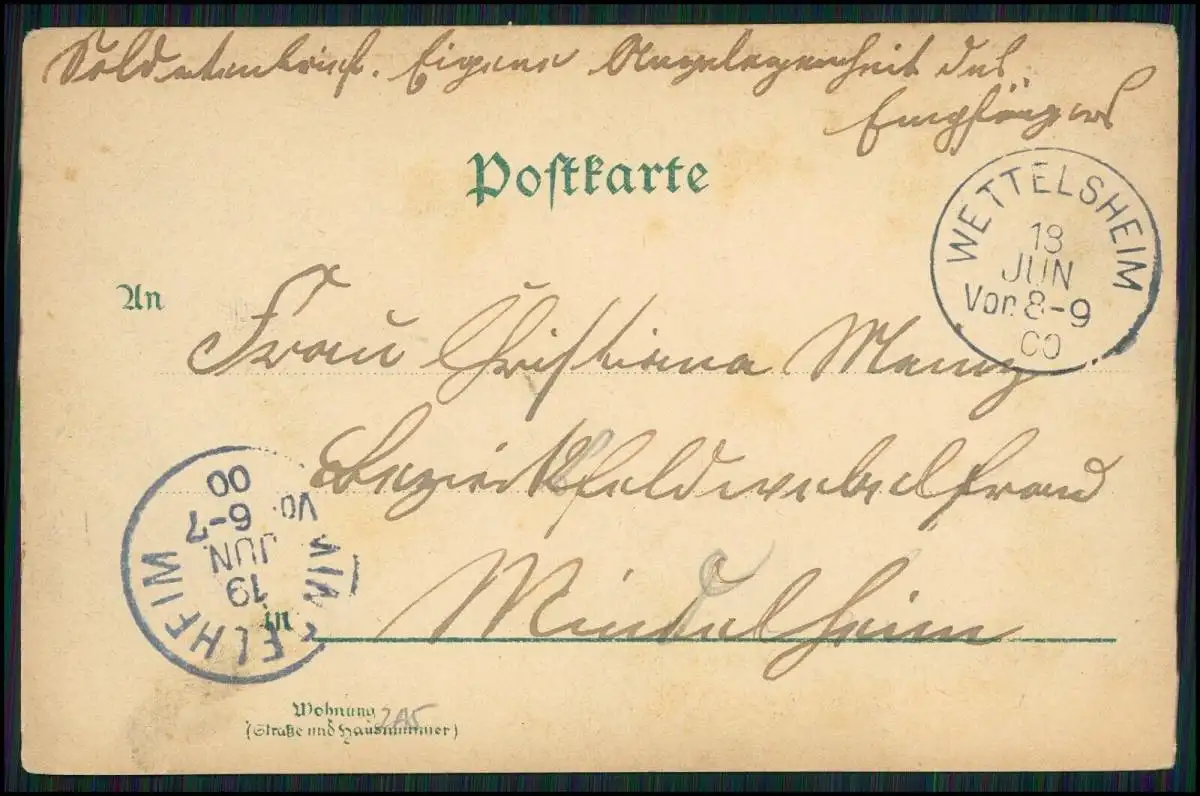 Soldatenbrief. Eigene Angelegenheit des
Empfängers
Postkarte
WETTELSHEIM
18
JUN
Vor. 8-9
00
An
Frau Christiana Menz
Bezirksfeldwebelsfrau
in Mindelheim
MINDELHEIM
19
JUN.
Vo. 6-7
00
Wohnung
(Straße und Hausnummer)